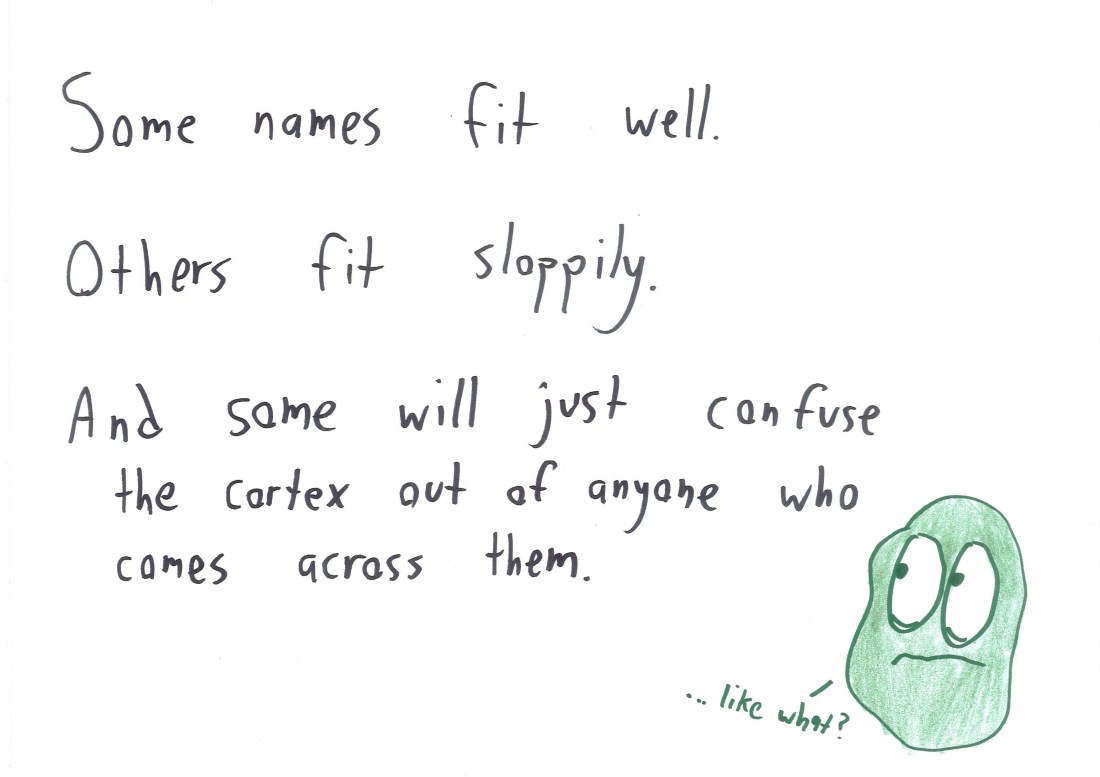 Some names fit well.
Others fit sloppily.
And some will just confuse
the cortex out of anyone who
comes across them.
... like what?